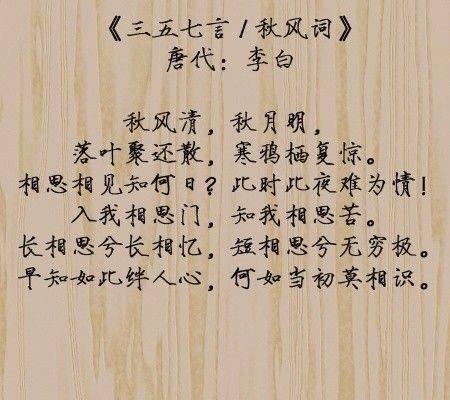 《三五七言/秋风词》
唐代：李白
秋风清，秋月明，
落叶聚还散，寒鸦栖复惊。
相思相见知何日？此时此夜难为情！
入我相思门，知我相思苦。
长相思兮长相忆，短相思兮无穷极。
早知如此绊人心，何如当初莫相识。